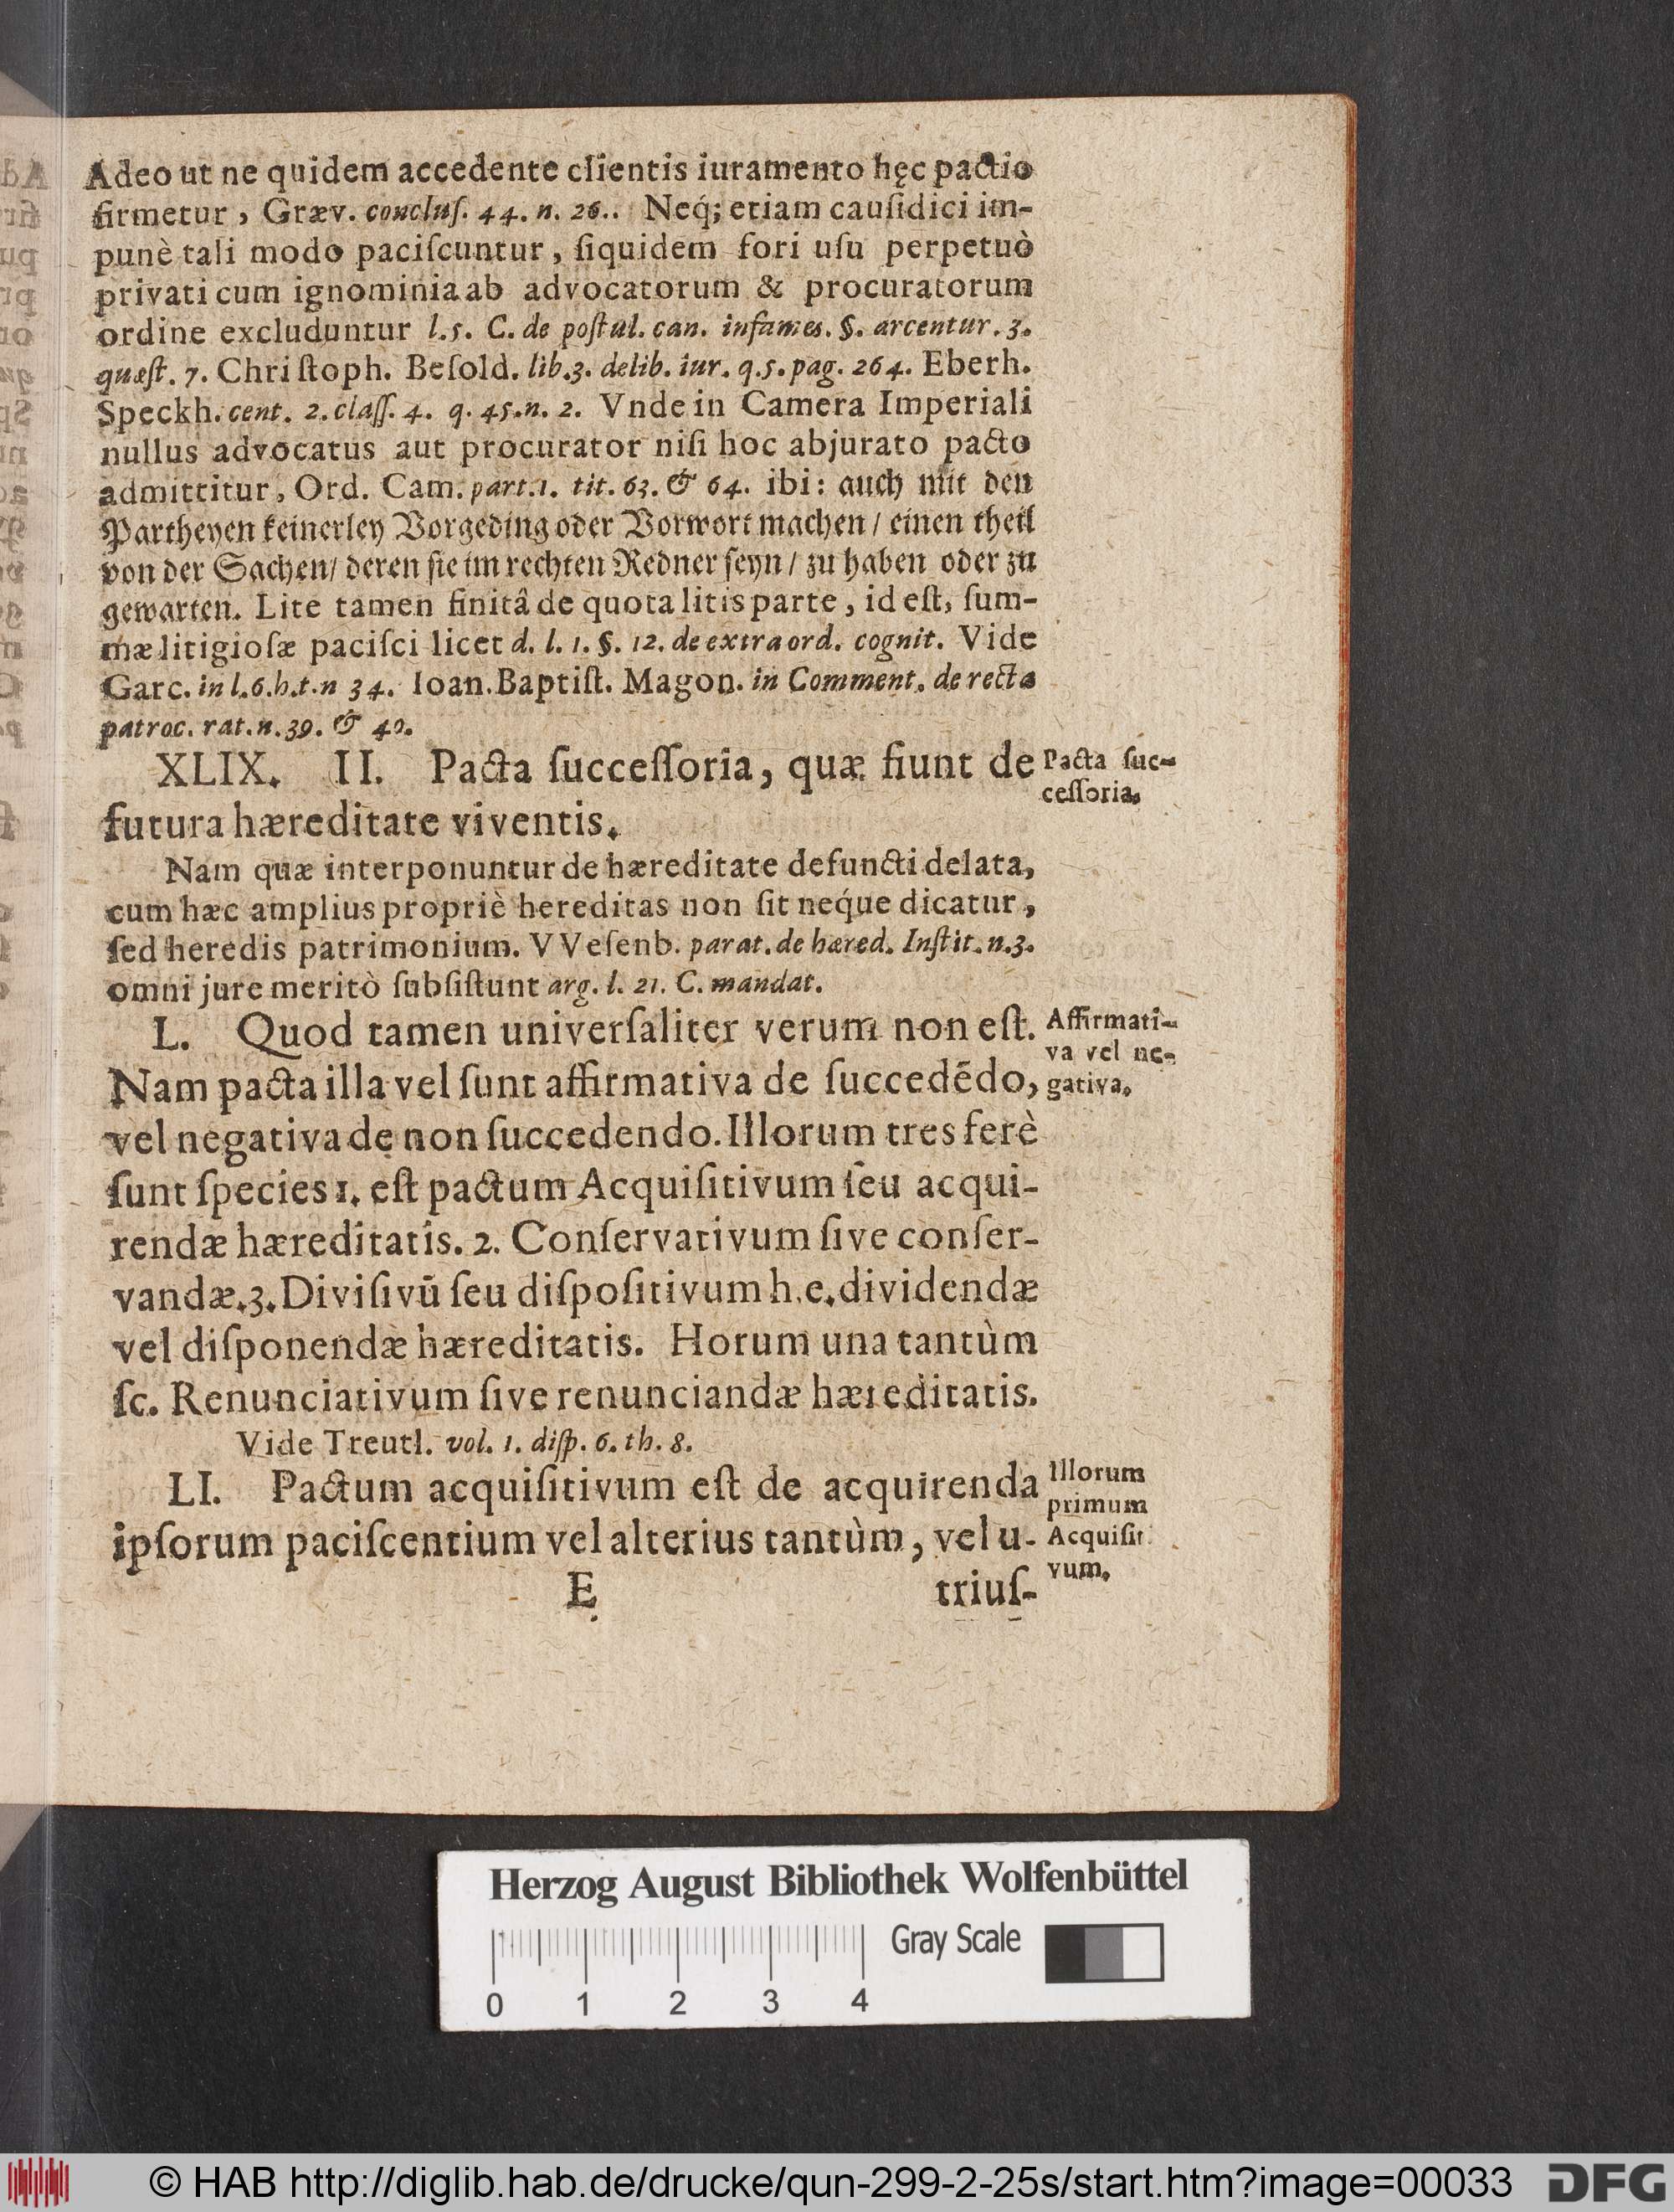 Adeo ut ne quidem accedente clientis iuramento hęc pactio
firmetur, Græv. concluſ. 44. n. 26.. Neq́; etiam cauſidici im-
punè tali modo paciſcuntur, ſiquidem fori uſu perpetuò
privati cum ignominia ab advocatorum & procuratorum
ordine excluduntur l.5. C. de poſtul. can. infames. §. arcentur. 3.
quæſt. 7. Chriſtoph. Beſold. lib.3. delib. iur. q.5. pag. 264. Eberh.
Speckh. cent. 2. claſſ. 4. q. 45.n. 2. Vnde in Camera Imperiali
nullus advocatus aut procurator niſi hoc abjurato pacto
admittitur, Ord. Cam. part.1. tit. 63. & 64. ibi: auch mit den
Partheyen keinerley Vorgeding oder Vorwort machen / einen theil
von der Sachen/ deren ſie im rechten Redner ſeyn / zu haben oder zu
gewarten. Lite tamen finitâ de quota litis parte, id eſt, ſum-
mæ litigioſæ paciſci licet d. l. 1. §. 12. de extraord. cognit. Vide
Garc. in l.6.h.t.n 34. Ioan. Baptiſt. Magon. in Comment. de recta
patroc. rat.n.39. & 40.
XLIX. II. Pacta ſucceſſoria, quæ fiunt de
Pacta ſuc-
ceſſoria.
futura hæreditate viventis.
Nam quæ interponuntur de hæreditate defuncti delata,
cum hæc amplius propriè hereditas non ſit neq́ue dicatur,
ſed heredis patrimonium. VVeſenb. parat. de hæred. Inſtit. n.3.
omni jure meritò ſubſiſtunt arg. l. 21. C. mandat.
L. Quod tamen univerſaliter verum non eſt.
Affirmati-
va vel ne-
gativa.
Nam pacta illa vel ſunt affirmativa de ſuccedēdo,
vel negativa de non ſuccedendo. Illorum tres ferè
ſunt ſpecies 1. eſt pactum Acquiſitivum ſeu acqui-
rendæ hæreditatis. 2. Conſervativum ſive conſer-
vandæ. 3. Diviſivū ſeu diſpoſitivum h.e. dividendæ
vel diſponendæ hæreditatis. Horum una tantùm
ſc. Renunciativum ſive renunciandæ hæreditatis.
Vide Treutl. vol. 1. diſp. 6. th. 8.
LI. Pactum acquiſitivum eſt de acquirenda
Illorum
primum
Acquiſit
vum.
ipſorum paciſcentium vel alterius tantùm, vel u-
E
triuſ-
Herzog August Bibliothek Wolfenbüttel
Gray Scale
0 1 2 3 4
© HAB http://diglib.hab.de/drucke/qun-299-2-25s/start.htm?image=00033
DFG